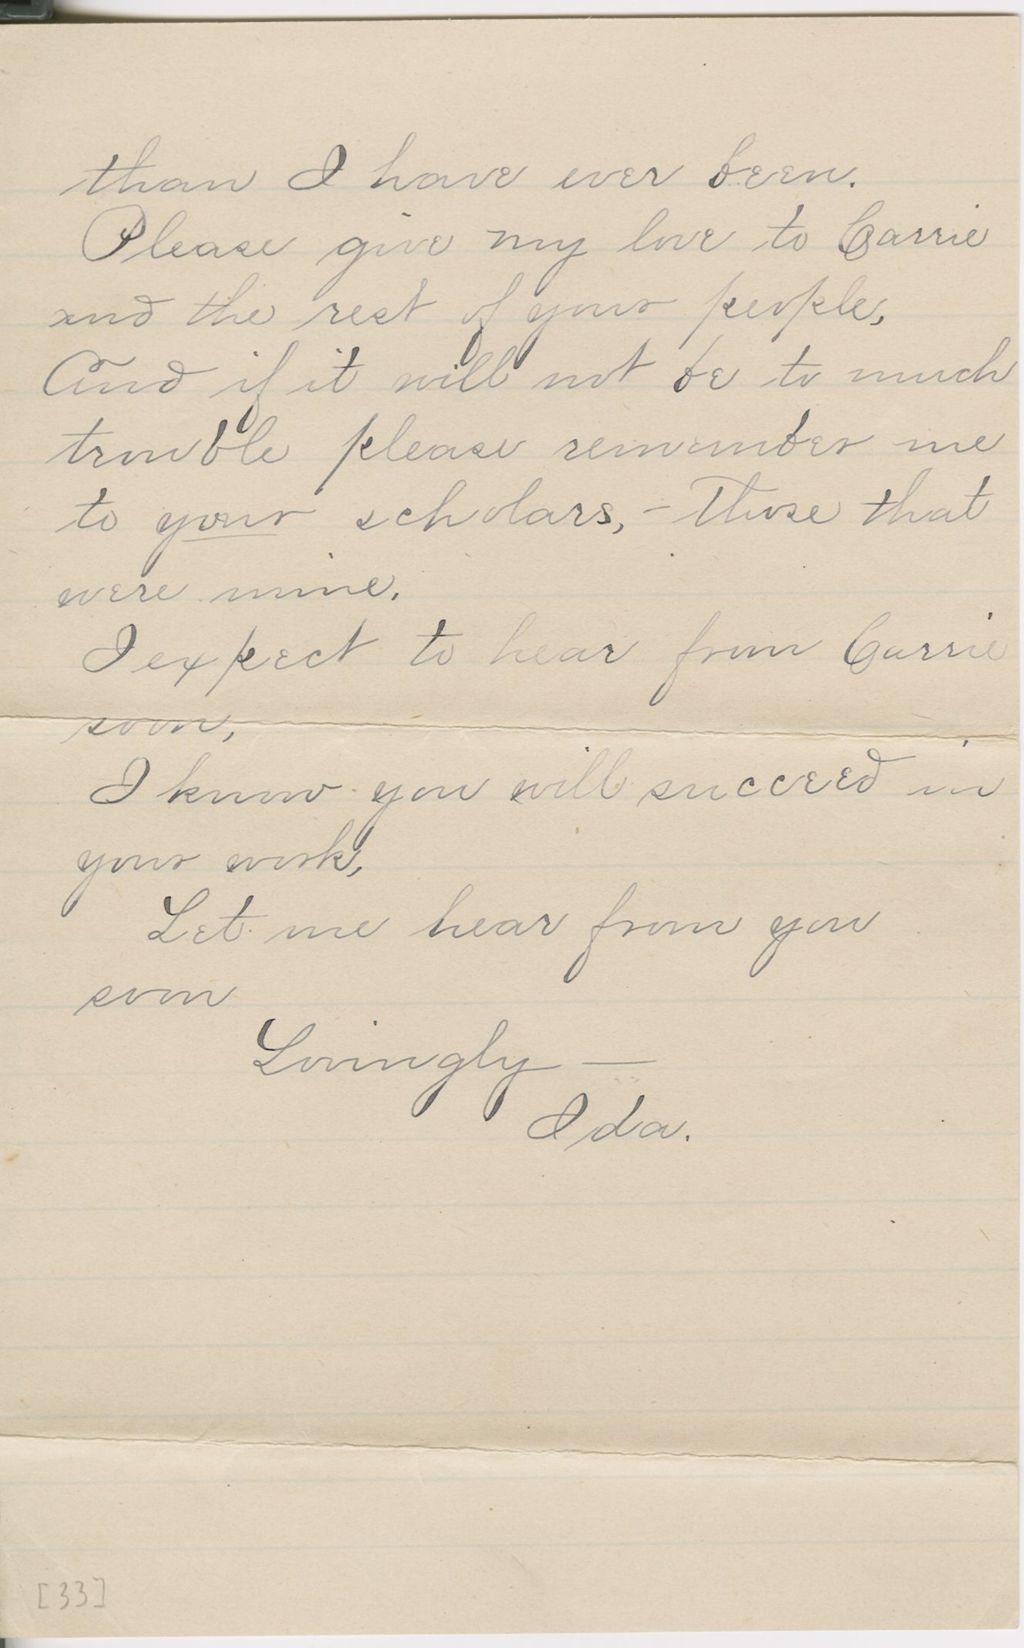 than I have ever been.
Please give my love to Carrie
and the rest of your people,
And if it will not be to much
trouble please remember me
to your scholars, - Those that
were mine.
I expect to hear from Carrie
soon,
I know you will succeed in
your work,
Let me hear from you
soon
Lovingly —
Ida.
[33]